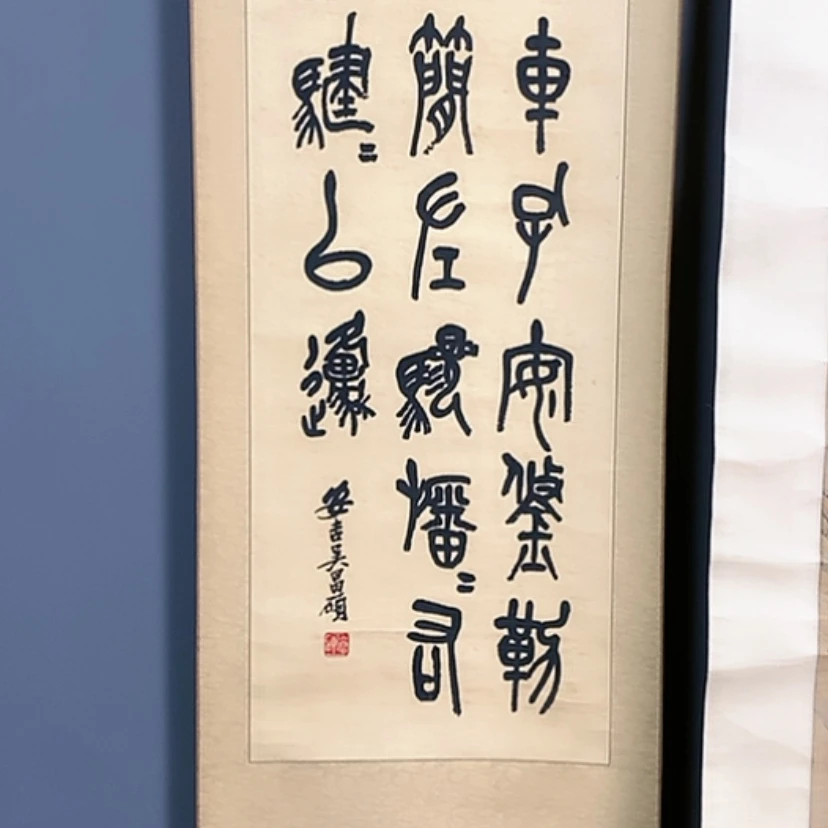 車孔安鋚勒
簡左驂旛〻右
騝〻㠯邍
安吉吳昌碩